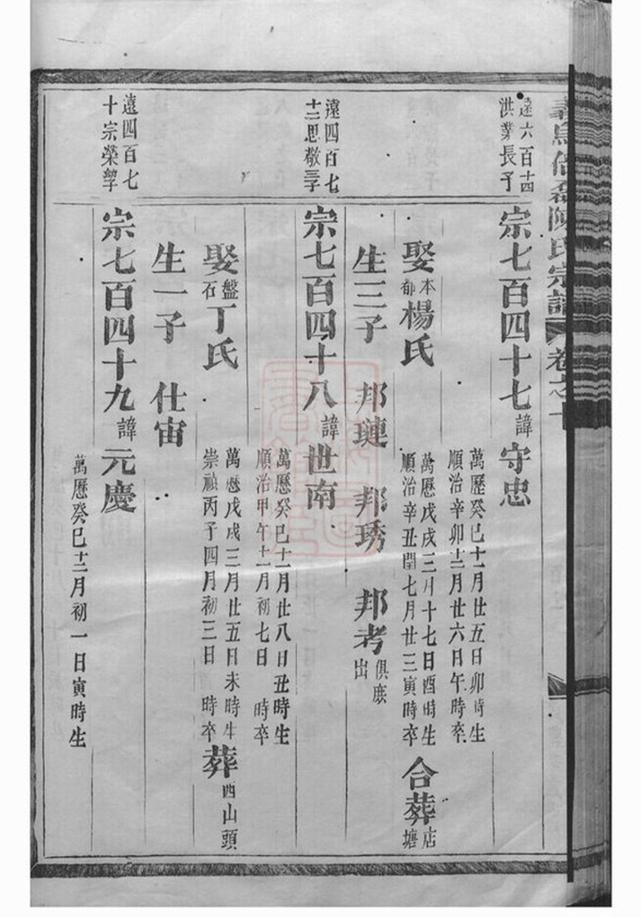 義烏倍磊陳氏宗譜 卷之十
遠六百十四
洪業長子
宗七百四十七諱守忠
萬歷癸巳十一月廿五日卯時生
順治辛卯十二月廿六日午時卒
娶本都楊氏
萬歷戊戌三月十七日酉時生
順治辛丑閏七月廿三寅時卒
合葬店塘
生三子 邦璉 邦琇 邦考 俱庶出
遠四百七
十二思敬三子
宗七百四十八諱世南
萬歷癸巳十一月廿八日丑時生
順治甲午十二月初七日 時卒
娶盤石丁氏
萬歷戊戌三月廿五日未時生
崇禎丙子四月初三日 時卒
葬西山頭
生一子 仕宙
遠四百七
十宗榮
宗七百四十九諱元慶
萬歷癸巳十二月初一日寅時生